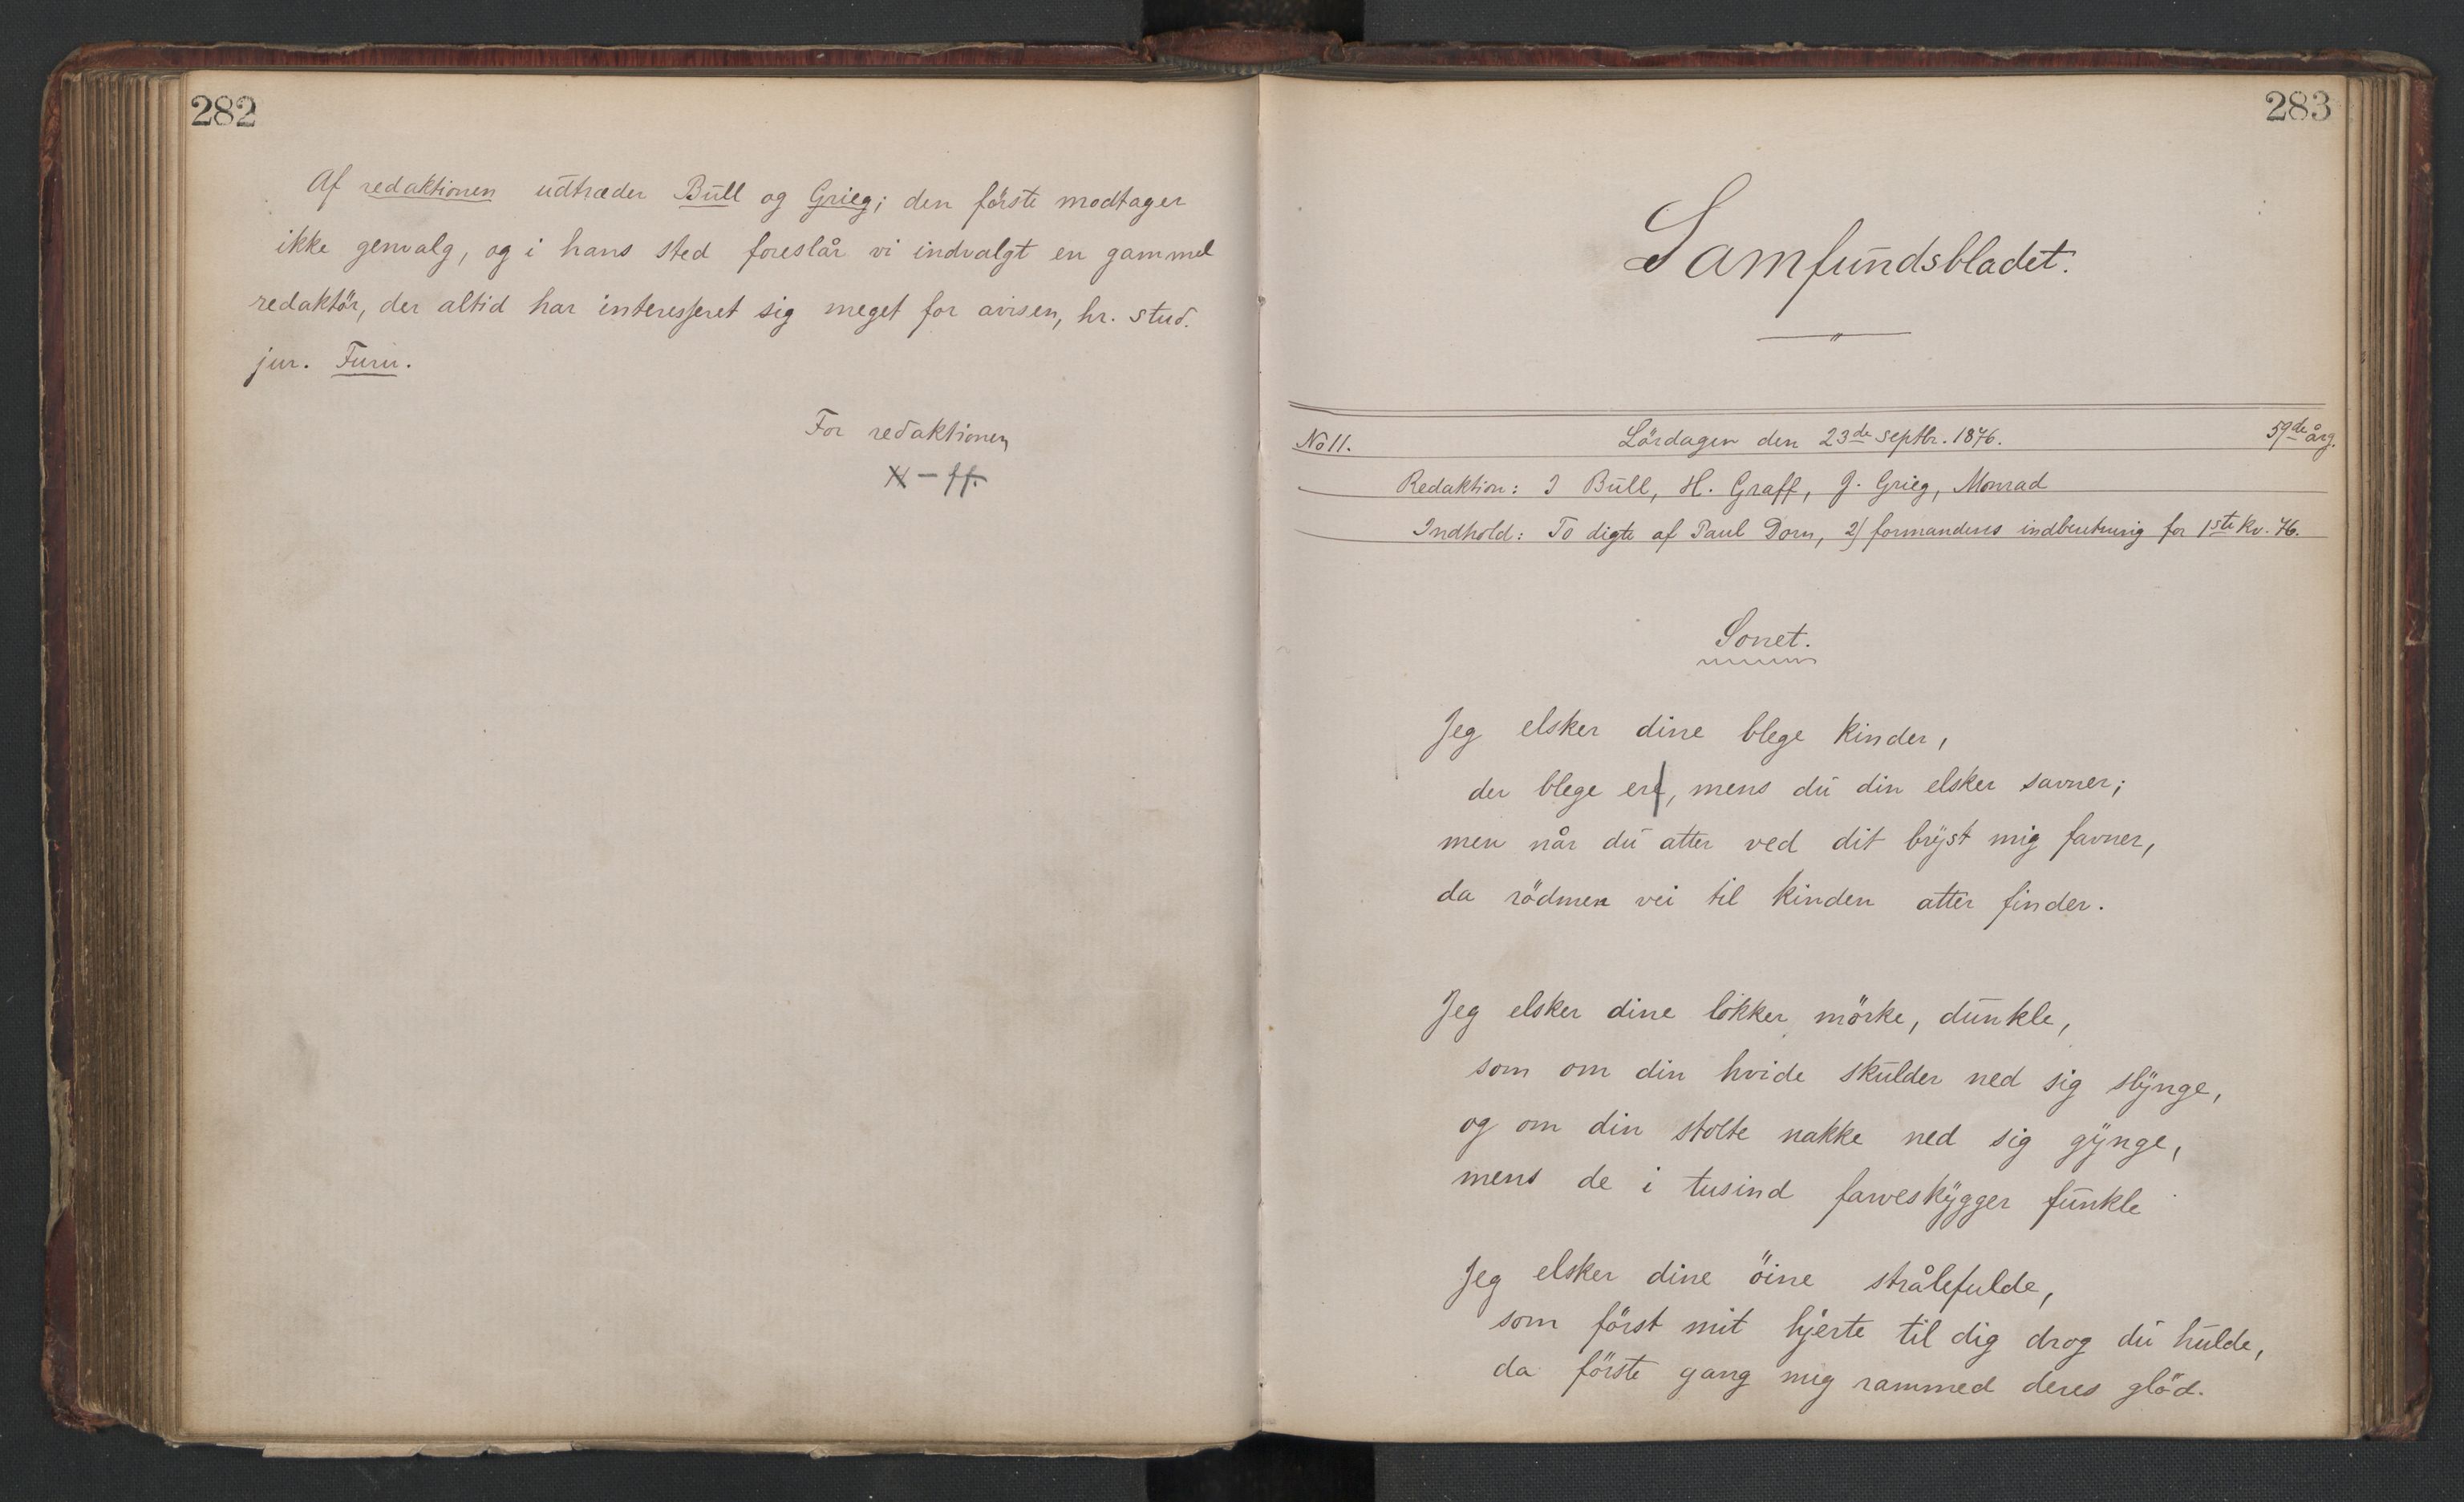 282
Af redaktionen udtræder Bull og Grieg; den förste modtager
ikke genvalg, og i hans sted foreslår vi indvalgt en gammel
redaktör, der altid har interesseret sig meget for avisen, hr. stud.
jur. Furu.
For redaktionen
X – ff.
283
Samfundsbladet.
No 11. Lördagen den 23de septbr. 1876. 59de årg.
Redaktion: I Bull, H. Graff, J. Grieg, Monrad
Indhold: To digte af Paul Dorn, 2) formandens indberetning for 1ste kv. 76.
Sonet.
Jeg elsker dine blege kinder,
der blege er, mens du din elsker savner;
men når du atter ved dit bryst mig favner,
da rödmen vei til kinden atter finder.
Jeg elsker dine lokker mörke, dunkle,
som om din hvide skulder ned sig slynge,
og om din stolte nakke ned sig gynge,
mens de i tusind farveskygger funkle
Jeg elsker dine öine strålefulde,
som först mit hjerte til dig drog du hulde,
da förste gang mig rammed deres glöd.